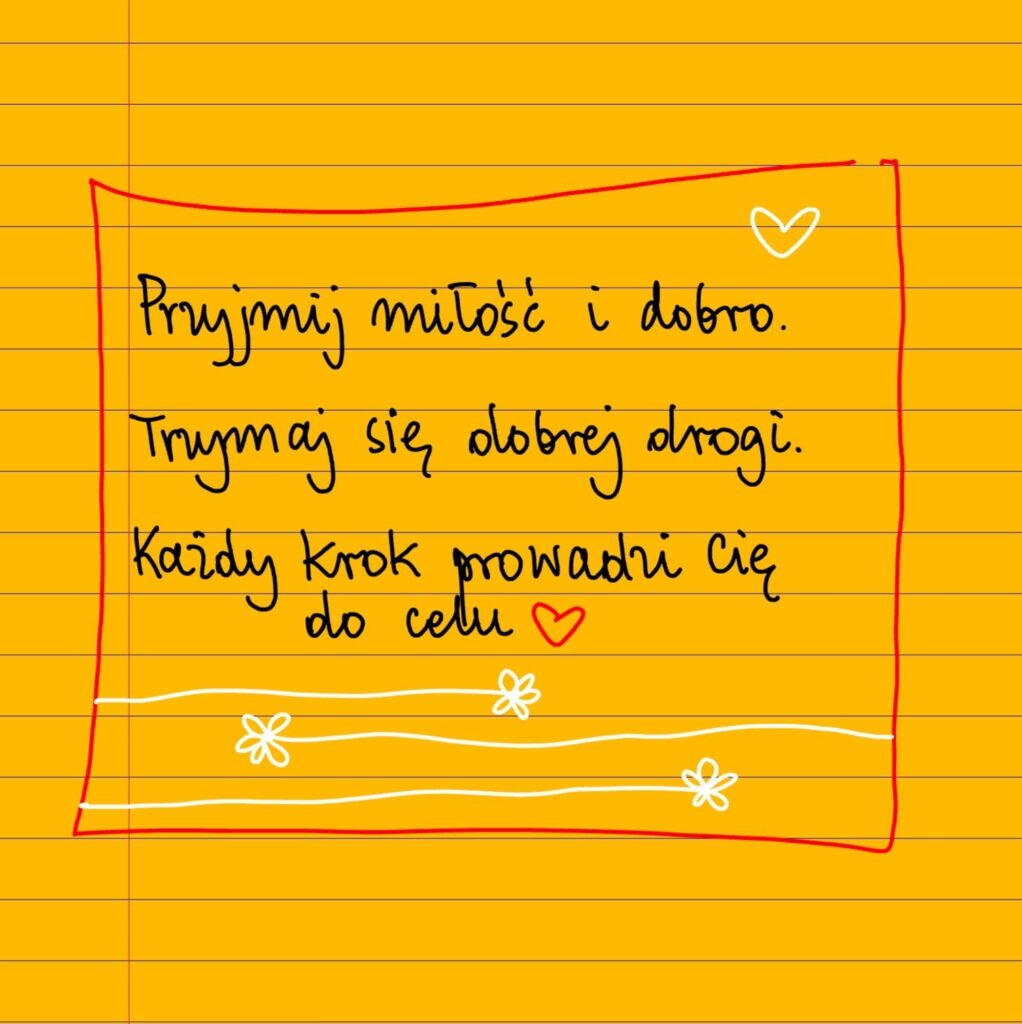 Przyjmij miłość i dobro.
Trzymaj się dobrej drogi.
Każdy krok prowadzi Cię
do celu